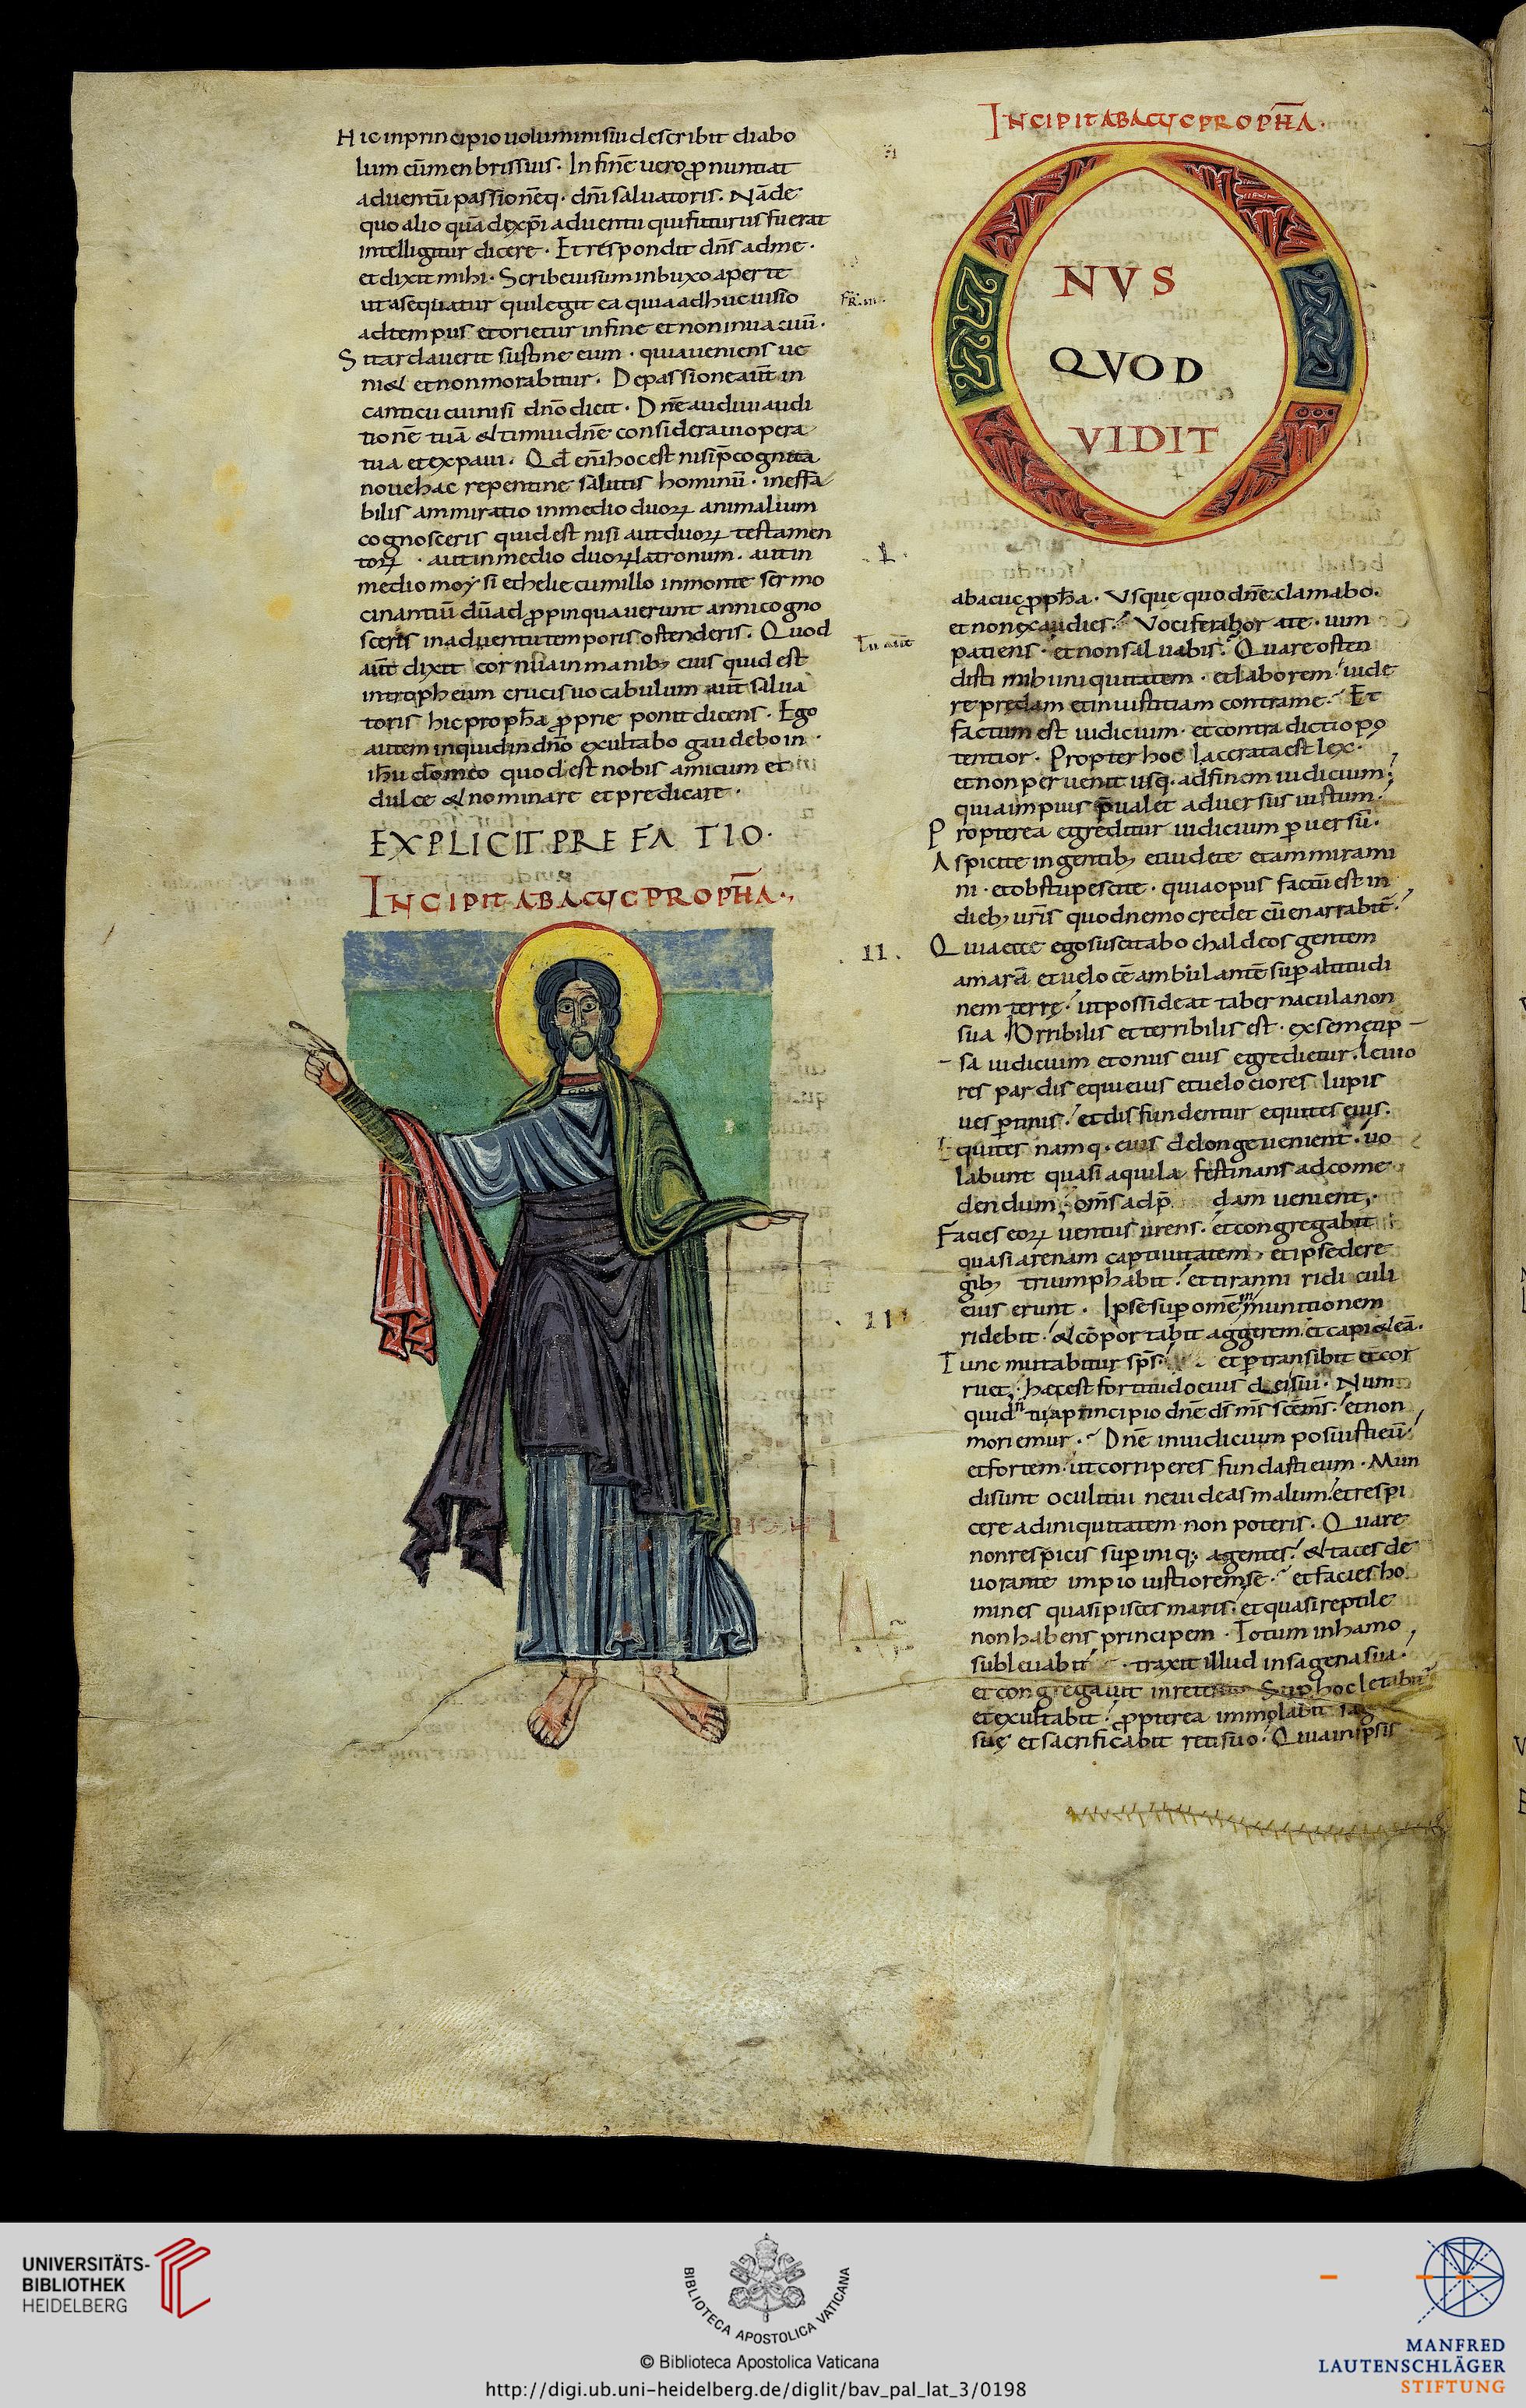 Hic in principio uoluminis sui describit diabo
lum cū menbris suis. In finē uero ꝓnuntiat
aduentū passionēq. dn̄i saluatoris. Nā de
quo alio quā de xp̄i aduentu qui futurus fuerat
intelligitur dicere. Et respondit dn̄s ad me.
et dixit mihi. Scribe uisum in buxo aperte
ut asequatur qui legit ea quia adhuc uisio
ad tempus et orietur in fine et non in uacuū.
Si tardauerit sustine eum. quia ueniens ue
ni& et non morabitur. De passione aūt in
canticu cui nisi dn̄o dicit. Dn̄e audiui audi
tionē tuā & timui dn̄e consideraui opera
tua et expaui. Qd̄ enī hoc est nisi p̄cognita
noue hac repentine salutis hominū. ineffa
bilis ammiratio in medio duoꝝ animalium
cognosceris quid est nisi aut duoꝝ testamen
toꝝ. aut in medio duoꝝ latronum. aut in
medio moysi et helie cum illo in monte sermo
cinantiū dū adpropinquauerunt anni cogno
sceris in aduentu temporis ostenderis. Quod
aūt dixit cornua in manib; eius quid est
in tropheum crucis uocabulum aūt salua
toris hic proph̄a ꝓprie ponit dicens. Ego
autem inquid in dn̄o exultabo gaudebo in
ih̄u dō meo quod est nobis amicum et
dulce & nominare et predicare.
EXPLICIT PREFATIO.
INCIPIT ABACUC PROPH̄A.
INCIPIT ABACUC PROPH̄A.
ONUS
QVOD
VIDIT
.I.
abacuc ꝓph̄a. Vsque quo dn̄e clamabo.
et non exaudies? Vociferabor a te. uim
patiens. et non saluabis? Quare osten
disti mihi iniquitatem. et laborem uide
re predam et iniustitiam contra me? Et
factum est iudicium. et contradictio po
tentior. Propter hoc lacerata est lex.
et non peruenit usq. ad finem iudicium;
quia impius p̄ualet aduersus iustum.
Propterea egreditur iudicium peruersū.
Aspicite in gentib; et uidete et ammirami
ni. et obstupescite. quia opus factū est in
dieb; ur̄is quod nemo credet cū enarrabit̄.
.II.
Quia ecce ego suscitabo chaldeos gentem
amarā et uelocē ambulantē super latitudi
nem terrę. ut possideat tabernacula non
sua. Orribilis et terribilis est. ex semetip
sa iudicium et onus eius egredietur. leuio
res pardis equi eius et uelociores lupis
uespertinis. et diffundentur equites eius.
Equites namq. eius de longe uenient. uo
labunt quasi aquila festinans ad come
dendum; om̄s ad p̄dam uenient;
Facies eoꝝ uentus urens. et congregabit
quasi arenam captiuitatem. et ipse de re
gib; triumphabit. et tiranni ridiculi
eius erunt. Ipse super omē munitionem
ridebit. & cōportabit aggerem. et capi& eā.
III
Tunc mutabitur sp̄s. et pertransibit et cor
ruet; haec est fortitudo eius dei sui. Num
quid n̄ tu a principio dn̄e ds̄ ms̄ scēms̄. et non
moriemur. Dn̄e in iudicium posuisti eū
et fortem. ut corriperes fundasti eum. Mun
di sunt oculi tui ne uideas malum. et respi
cere ad iniquitatem non poteris. Quare
non respicis super iniq; agentes. & taces de
uorante impio iustiorem se. et facies ho
mines quasi pisces maris. et quasi reptile
non habens principem. Totum in hamo
subleuabit. traxit illud in sagena sua.
et congregauit in rete. Sup hoc letabit̄
et exultabit. ꝓpterea immolabit sag
suę et sacrificabit reti suo. Quia in ipsis
UNIVERSITÄTS-
BIBLIOTHEK
HEIDELBERG
BIBLIOTECA APOSTOLICA VATICANA
© Biblioteca Apostolica Vaticana
http://digi.ub.uni-heidelberg.de/diglit/bav_pal_lat_3/0198
MANFRED
LAUTENSCHLÄGER
STIFTUNG